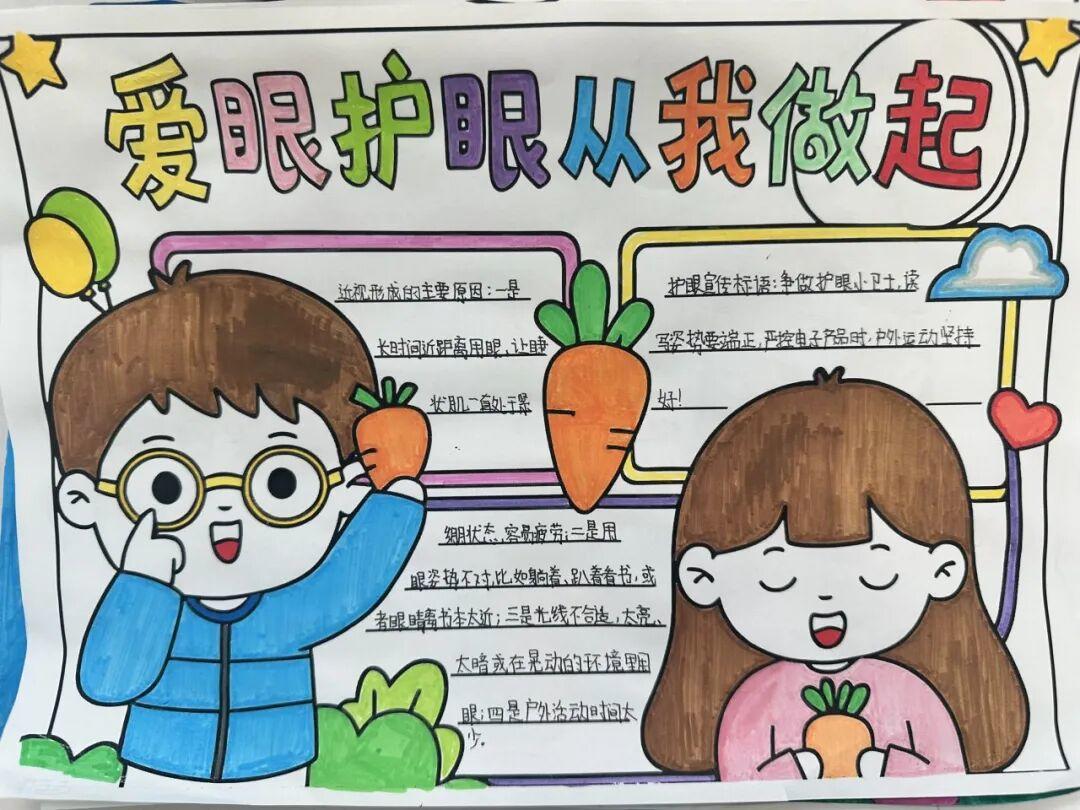 爱眼护眼从我做起
近视形成的主要原因：一是
长时间近距离用眼，让睫
状肌一直处于紧
绷状态，容易疲劳；二是用
眼姿势不对，比如躺着、趴着看书，或
者眼睛离书本太近；三是光线不合适，太亮、
太暗或在晃动的环境里用
眼；四是户外活动时间太
少。
护眼宣传标语：争做护眼小卫士，读
写姿势要端正，严控电子产品时，户外运动坚持
好！